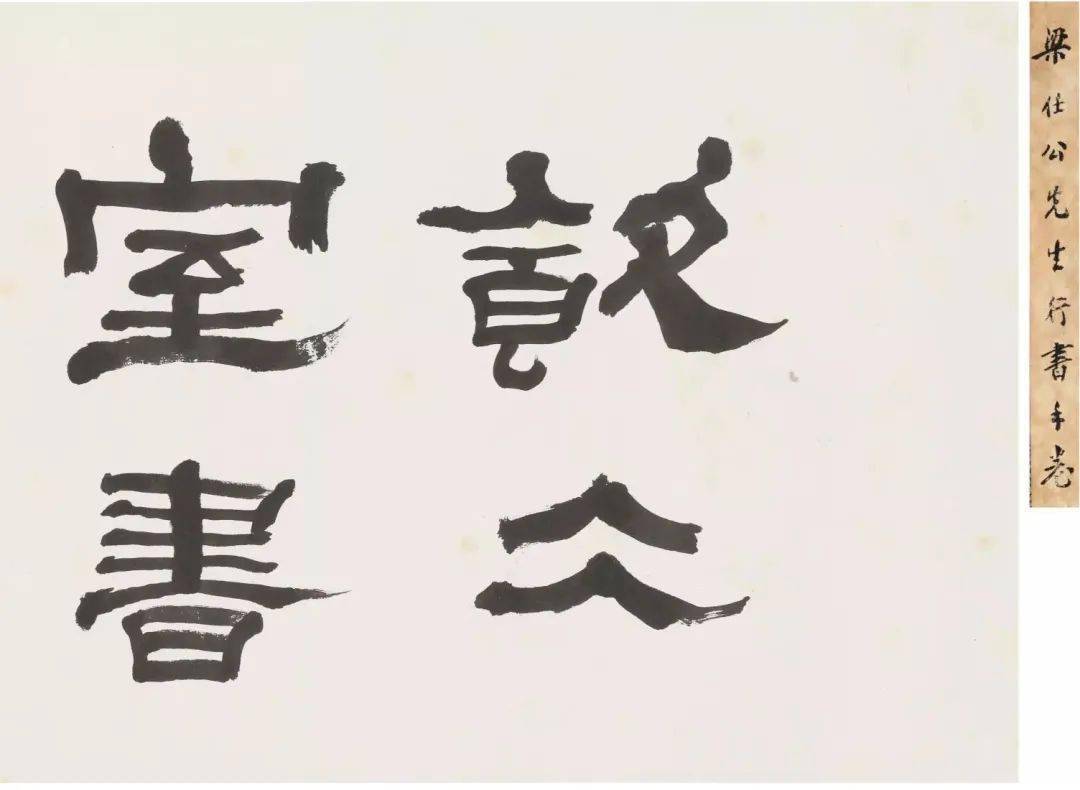 梁任公先生行書手卷
㱃仌
室書